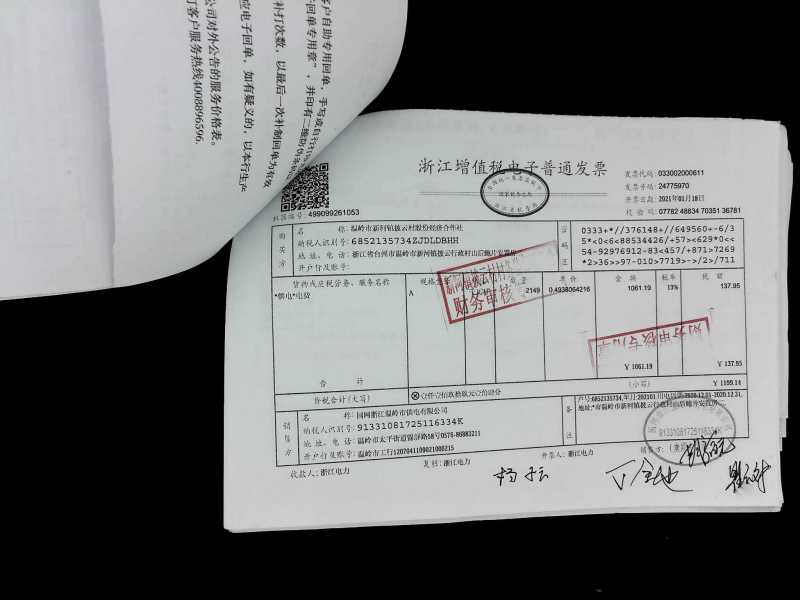 客户自助专用回单,手写或自行
子回单专用章”,并印有二维防伪
补打次数,以最后一次补制回单为有效
应电子回单,如有疑义的,以本行生产
公司对外公告的服务价格表。
打客户服务热线4008896596.
浙江增值税电子普通发票
发票代码: 033002000611
发票号码: 24775970
开票日期: 2021年01月18日
校 验 码: 07782 48834 70351 36781
机器编号: 499099261053
购买方
名 称: 温岭市新河镇披云村股份经济合作社
纳税人识别号: 6852135734ZJDLDBHH
地 址、电 话: 浙江省台州市温岭市新河镇披云行政村山后
开户行及账号:
密码区
0333+*//376148+//649560+-6/3
5*<0<6<88534426/+57><629*0<<
54-92976912-83<457/+871>7269
*2>36>>97-010>7719>->/2>/711
货物或应税劳务、服务名称 规格型号 数量 单价 金额 税率 税额
*供电*电费 A 2149 0.4938064216 1061.19 13% 137.95
新河镇披云村
财务审核
财务审核专用章
合 计 ¥ 1061.19 ¥ 137.95
价税合计(大写) ⊗壹仟壹佰玖拾玖元壹角肆分 (小写) ¥ 1199.14
销售方
名 称: 国网浙江温岭市供电有限公司
纳税人识别号: 91331081725116334K
地 址、电 话: 温岭市太平街道锦屏路58号0576-86883211
开户行及账号: 温岭市工行1207041109021000215
备注
户号:6852135734,年月:202101 用电
地址:*市温岭市新河镇披云行政村山后
91331081725116334K
收款人: 浙江电力 复核: 浙江电力 开票人: 浙江电力 销售方:(章)